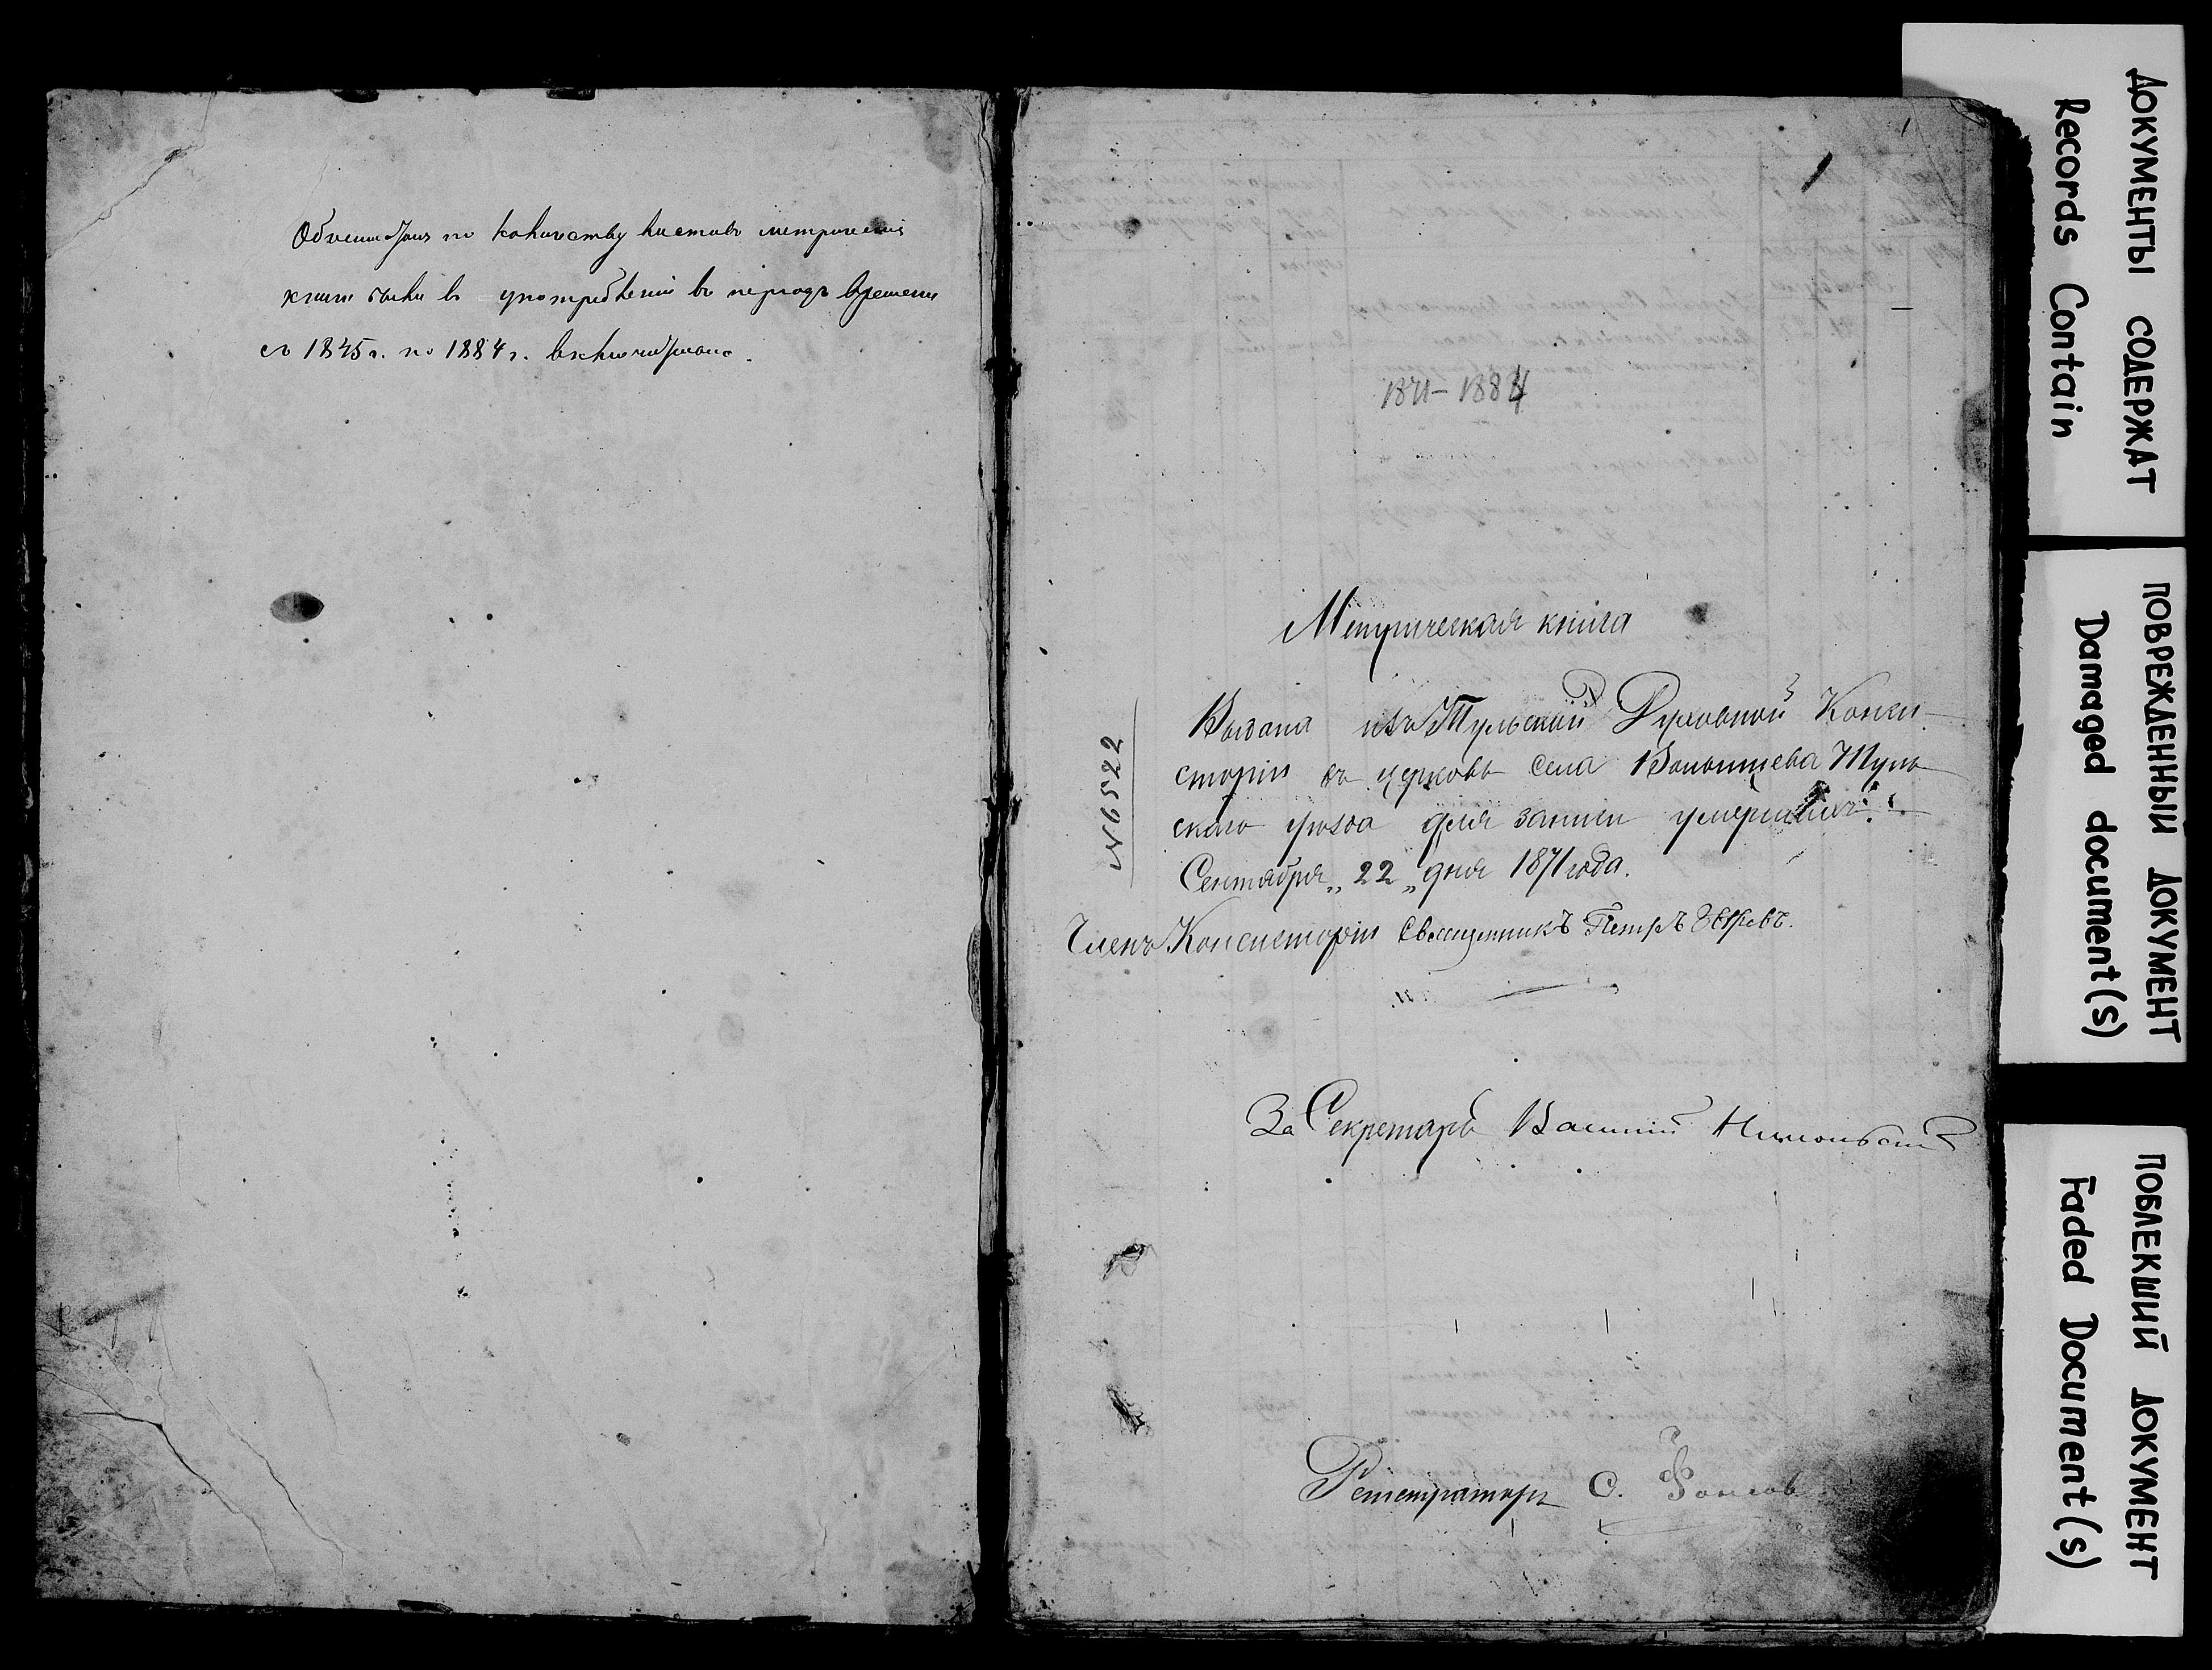 по количеству листовъ метрическія
книги были въ употребленіи въ періодъ времени
съ 1845 г. по 1884 г. включительно.
1
1871-1884
Метрическая книга
№ 6522
Выдана изъ Тульской Духовной Конси-
сторіи въ церковь села Туль-
скаго уѣзда для записи умершихъ.
Сентября „22„ дня 1871 года.
Членъ Консисторіи Священникъ Петръ
За Секретаря Василій
Регистраторъ С.
ДОКУМЕНТЫ СОДЕРЖАТ
Records Contain
ПОВРЕЖДЕННЫЙ ДОКУМЕНТ
Damaged document(s)
ПОБЛЕКШИЙ ДОКУМЕНТ
Faded Document(s)